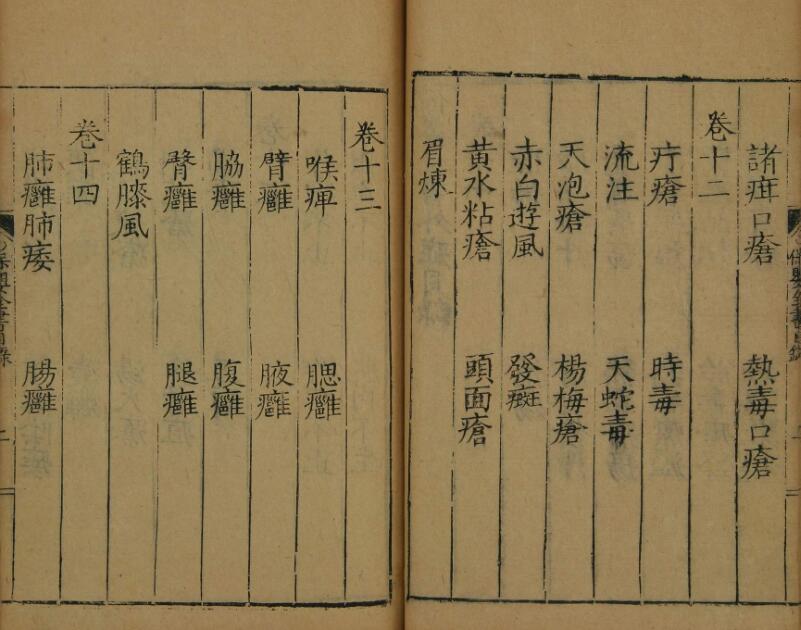 諸疳口瘡　熱毒口瘡
卷十二
疔瘡　時毒
流注　天蛇毒
天泡瘡　楊梅瘡
赤白遊風　發斑
黄水粘瘡　頭面瘡
眉煉
卷十三
喉痺　腮癰
臂癰　腋癰
脇癰　腹癰
臀癰　腿癰
鶴膝風
卷十四
肺癰肺痿　腸癰